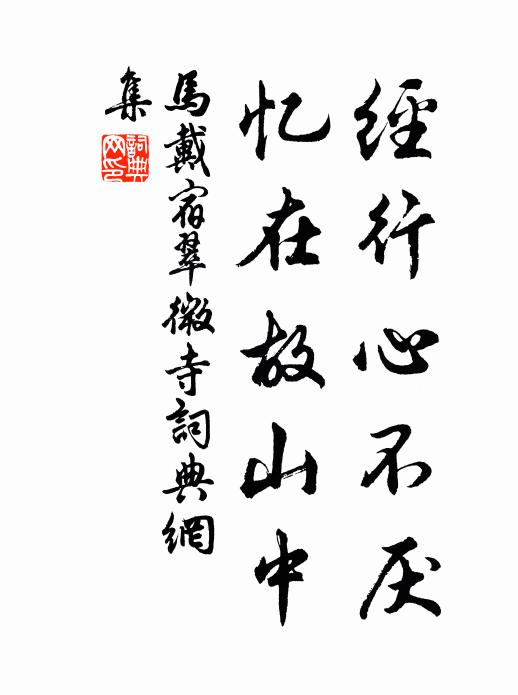 經行心不厌
忆在故山中
馬戴宿翠微寺詞典網
集
詞典
网印